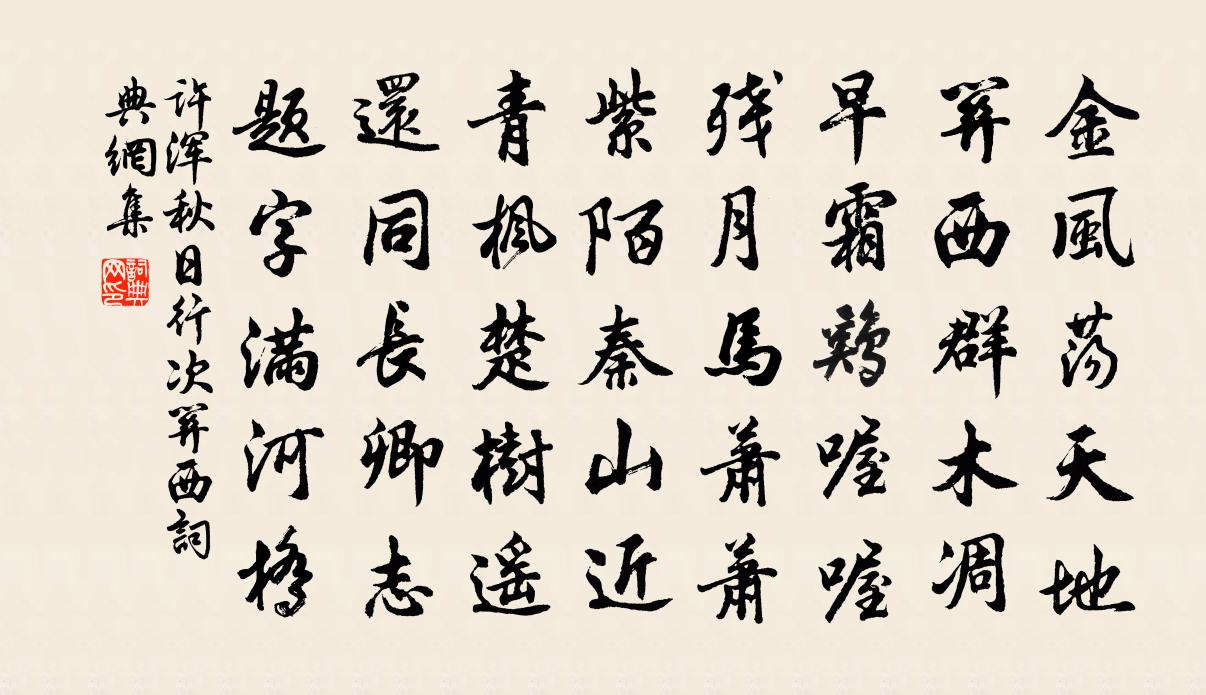 金風蕩天地
關西群木凋
早霜鷄喔喔
残月馬蕭蕭
紫陌秦山近
青楓楚樹遥
還同長卿志
題字滿河橋
許渾秋日行次關西詞
典網集
詞典
网印